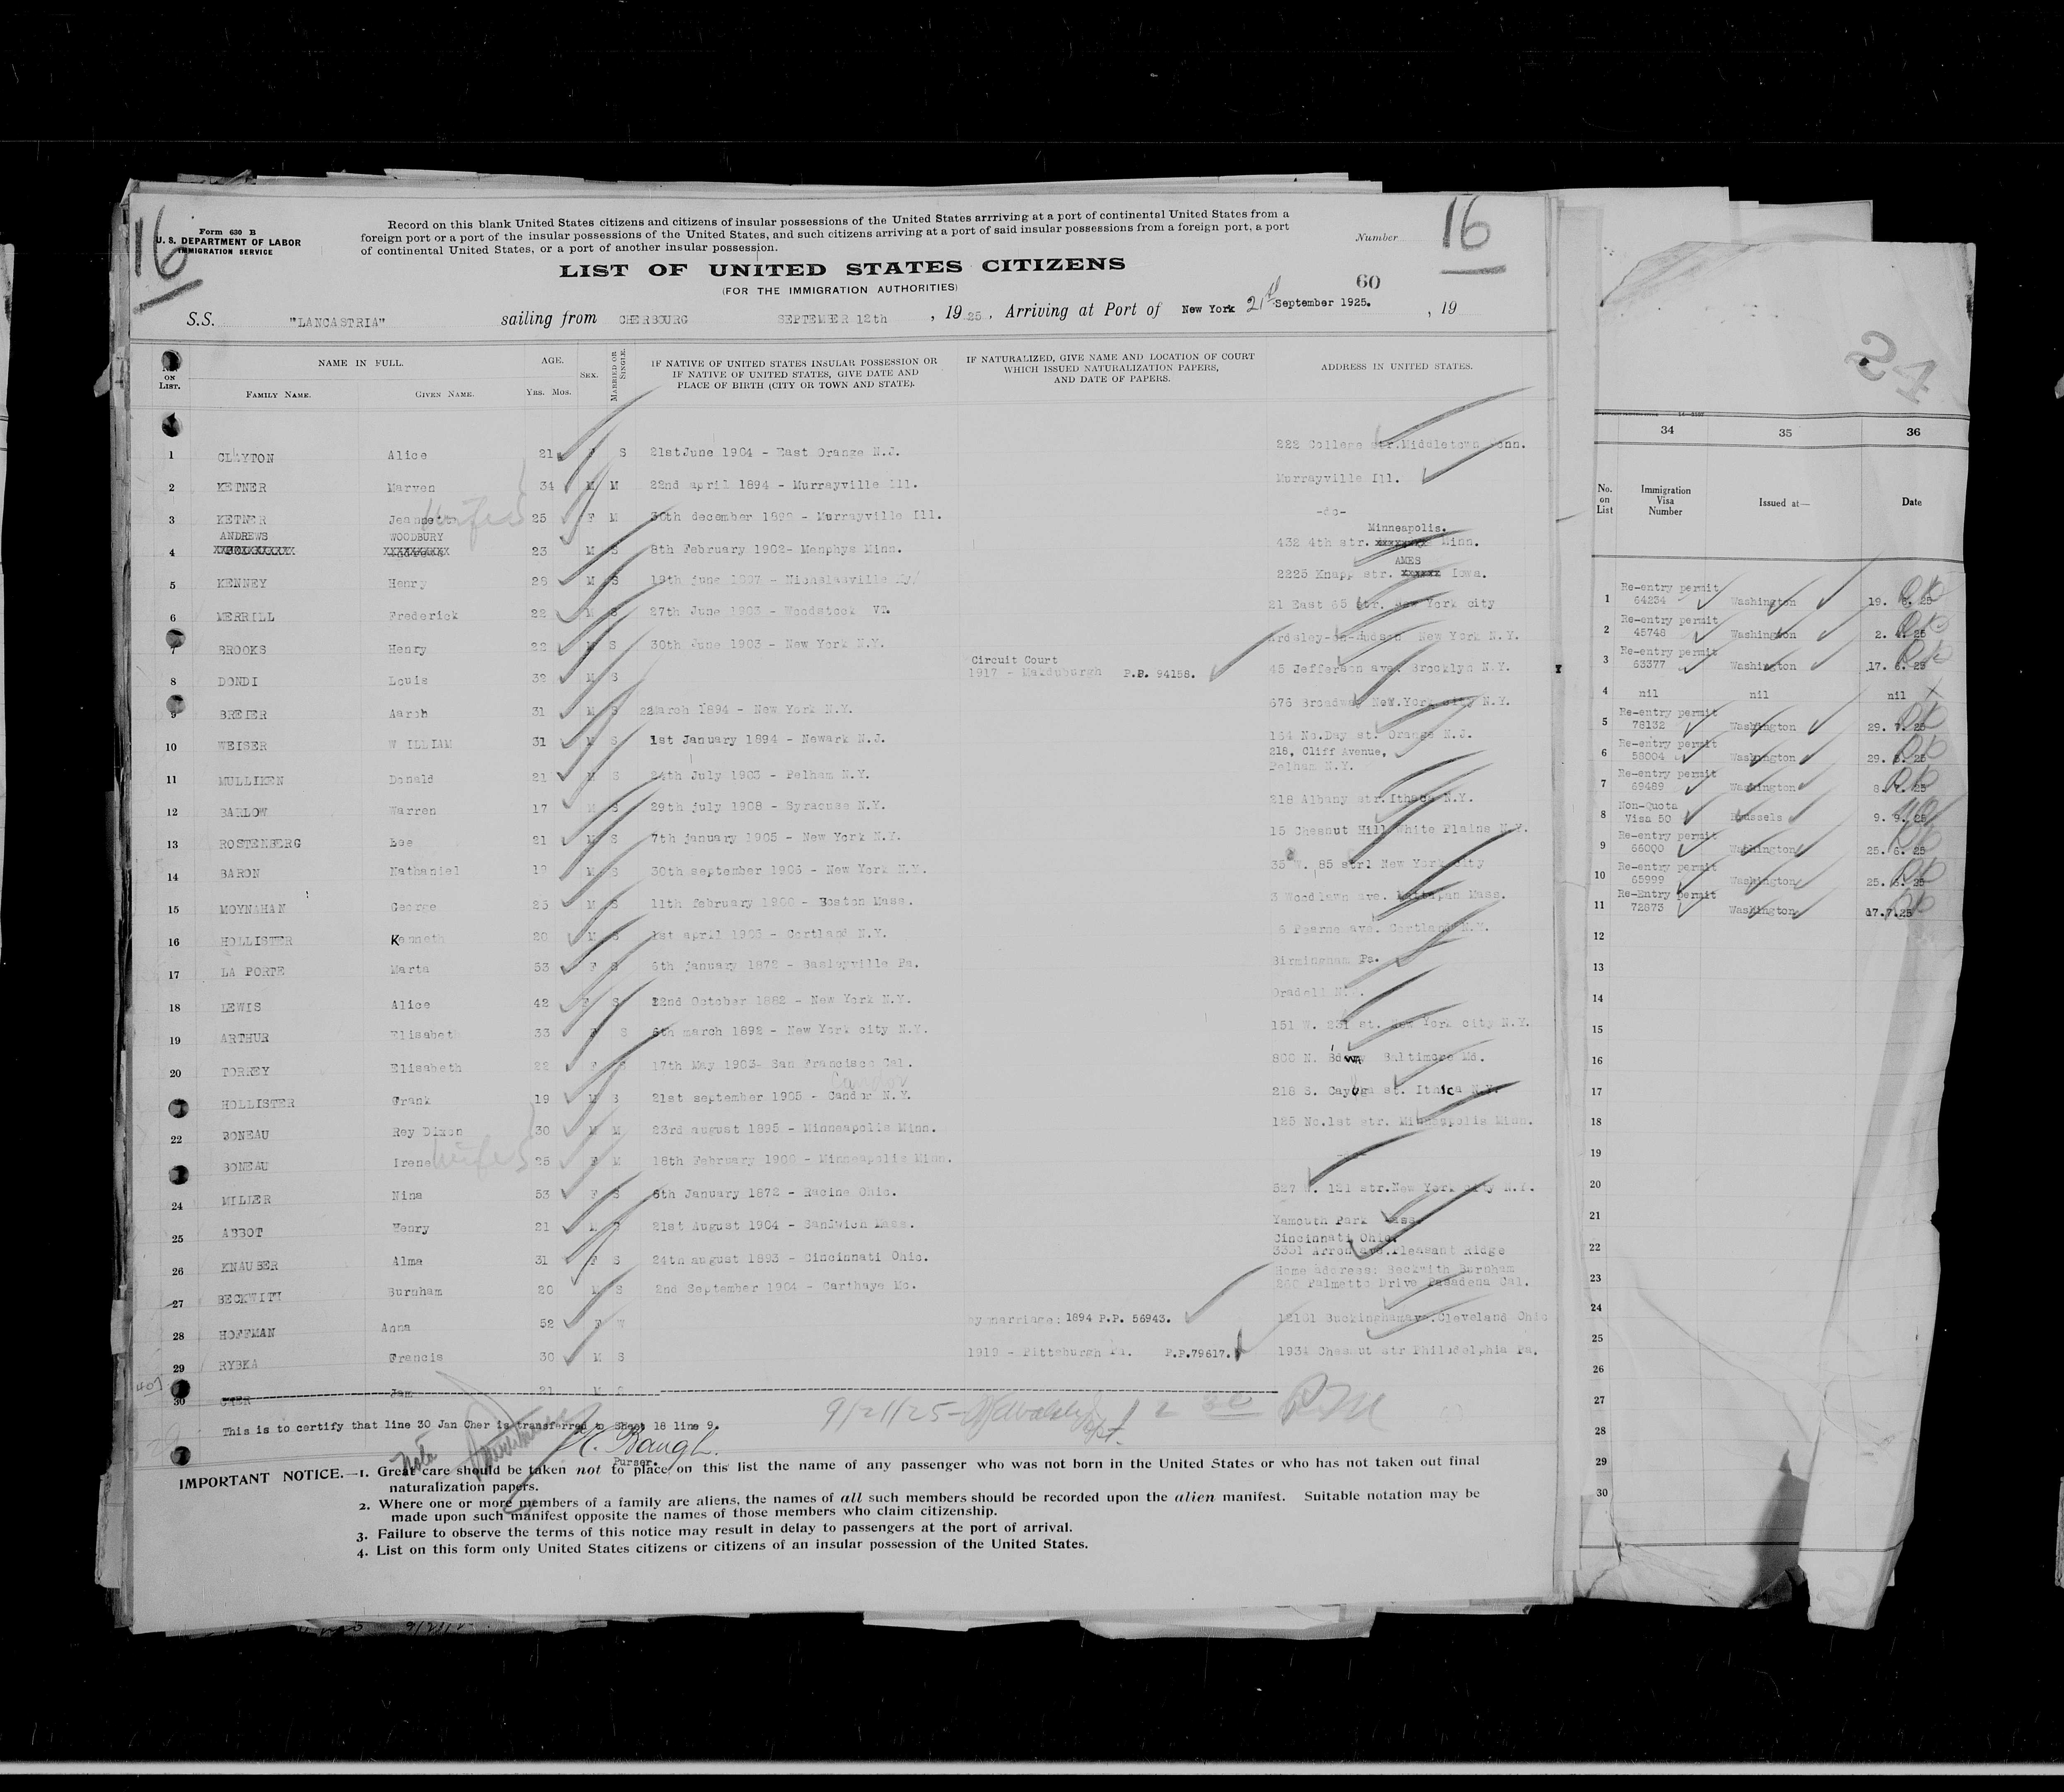 16
Form 630 B
U. S. DEPARTMENT OF LABOR
IMMIGRATION SERVICE
Record on this blank United States citizens and citizens of insular possessions of the United States arrriving at a port of continental United States from a
foreign port or a port of the insular possessions of the United States, and such citizens arriving at a port of said insular possessions from a foreign port, a port
of continental United States, or a port of another insular possession.
Number
16
LIST OF UNITED STATES CITIZENS
(FOR THE IMMIGRATION AUTHORITIES)
60
S.S. "LANCASTRIA" sailing from CHERBOURG SEPTEMBER 12th , 1925 , Arriving at Port of New York 21st September 1925. , 19
ON LIST. NAME IN FULL. AGE. SEX. MARRIED OR SINGLE. IF NATIVE OF UNITED STATES INSULAR POSSESSION OR IF NATIVE OF UNITED STATES, GIVE DATE AND PLACE OF BIRTH (CITY OR TOWN AND STATE). IF NATURALIZED, GIVE NAME AND LOCATION OF COURT WHICH ISSUED NATURALIZATION PAPERS, AND DATE OF PAPERS. ADDRESS IN UNITED STATES.
FAMILY NAME. GIVEN NAME. YRS. MOS.
1 CLAYTON Alice 21 F S 21stJune 1904 - East Orange N.J. 222 College str.Middletown Conn.
2 KETNER Marven 34 M M 22nd april 1894 - Murrayville Ill. Murrayville Ill.
3 KETNER Jeannett wife 25 F M 30th december 1899 - Murrayville Ill. -do-
ANDREWS WOODBURY Minneapolis.
4 23 M S 8th February 1902- Menphys Minn. 432 4th str. Minn.
AMES
5 KENNEY Henry 28 M S 19th june 1897 - 2225 Knapp str. Iowa.
6 MERRILL Frederick 22 M S 27th June 1903 - Woodstock VT. 21 East 65 str. New York city
7 BROOKS Henry 22 M S 30th June 1903 - New York N.Y. Ardsley-on-Hudson New York N.Y.
Circuit Court
8 DONDI Louis 32 M S 1917 - P.P. 94158. 45 Jefferson ave. Brooklyn N.Y.
9 BREIER Aaron 31 M S 22March 1894 - New York N.Y. 676 Broadway New.York city N.Y.
10 WEISER W ILLIAM 31 M S 1st January 1894 - Newark N.J. 164 No.Day st. Orange N.J.
218, Cliff Avenue,
11 MULLIKEN Donald 21 M S 24th July 1903 - Pelham N.Y. Pelham N.Y.
12 BARLOW Warren 17 M S 29th july 1908 - Syracuse N.Y. 218 Albany str.Ithaca N.Y.
13 ROSTENBERG Leo 21 M S 7th january 1905 - New York N.Y. 15 Chesnut Hill White Plains N.Y.
14 BARON Nathaniel 19 M S 30th september 1905 - New York N.Y. 35 W. 85 str1 New York city
15 MOYNAHAN George 25 M S 11th february 1900 - Boston Mass. 3 Woodlawn ave. Mattapan Mass.
16 HOLLISTER Kenneth 20 M S 1st april 1905 - Cortland N.Y. 6 Pearne ave. Cortland N.Y.
17 LA PORTE Marta 53 F S 6th january 1872 - Pa. Birmingham Pa.
18 LEWIS Alice 42 F S 22nd October 1882 - New York N.Y. Oradell N.J.
19 ARTHUR Elisabeth 33 F S 6th march 1892 - New York city N.Y. 151 W. 231 st. New York city N.Y.
20 TORREY Elisabeth 22 F S 17th May 1903- San Francisco Cal. 800 N. Baltimore Md.
Candor
HOLLISTER Frank 19 M S 21st september 1905 - Candor N.Y. 218 S. Cayuga st. Ithica N.Y.
22 BONEAU Rey Dixon 30 M M 23rd august 1895 - Minneapolis Minn. 125 No.1st str. Minneapolis Minn.
BONEAU Irene wife 25 F M 18th February 1900 - Minneapolis Minn.
24 MILLER Nina 53 F S 6th January 1872 - Racine Ohio. 527 W. 121 str.New York city N.Y.
25 ABBOT Henry 21 M S 21st August 1904 - Sandwich Mass. Yamouth Park Mass.
Cincinnati Ohio.
26 KNAUBER Alma 31 F S 24th august 1893 - Cincinnati Ohio. 3331 Arron ave.Pleasant Ridge
Home address: Beckwith Burnham
27 BECKWITH Burnham 20 M S 2nd September 1904 - Carthaye Mo. 260 Palmetto Drive Pasadena Cal.
28 HOFFMAN Anna 52 F W By marriage: 1894 P.P. 56943. 12101 Buckinghamave.Cleveland Ohio
29 RYBKA Francis 30 M S 1919 - Pittsburgh Pa. P.P.79617. 1934 Chesnut str Philadelphia Pa.
30 CHER Jan 21 M S
This is to certify that line 30 Jan Cher is transferred to Sheet 18 line 9.
9/21/25
Purser.
IMPORTANT NOTICE.—1. Great care should be taken not to place on this list the name of any passenger who was not born in the United States or who has not taken out final
naturalization papers.
2. Where one or more members of a family are aliens, the names of all such members should be recorded upon the alien manifest. Suitable notation may be
made upon such manifest opposite the names of those members who claim citizenship.
3. Failure to observe the terms of this notice may result in delay to passengers at the port of arrival.
4. List on this form only United States citizens or citizens of an insular possession of the United States.
34 35 36
No. on List Immigration Visa Number Issued at— Date
1 Re-entry permit 64234 Washington 19. 6. 25
2 Re-entry permit 45748 Washington 2. 25
3 Re-entry permit 63377 Washington 17. 6. 25
4 nil nil nil
5 Re-entry permit 78132 Washington 29. 7. 25
6 Re-entry permit 58004 Washington 29. 5. 25
7 Re-entry permit 69489 Washington 8. 7. 25
8 Non-Quota Visa 50 Brussels 9. 9. 25
9 Re-entry permit 66000 Washington 25. 6. 25
10 Re-entry permit 65999 Washington 25. 6. 25
11 Re-Entry permit 72873 Washington 17.7.25
12
13
14
15
16
17
18
19
20
21
22
23
24
25
26
27
28
29
30